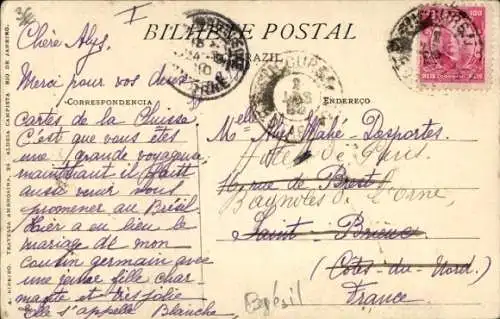 I
BILHETE POSTAL
BRAZIL
CORRESPONDENCIA
ENDEREÇO
A. RIBEIRO, TRAVESSA AMERQUINA, 20 ALDEIA CAMPISTA RIO DE JANEIRO.
Chère Alys.
Merci pour vos deux
Cartes de la Suisse
C'est que vous êtes
une grande voyageuse
maintenant il faut
aussi venir vous
promener au Brésil.
Hier a eu lieu le
mariage de mon
cousin germain avec
une jeune fille char-
mante et très jolie
Elle s'appelle Blanche
100
REIS
Melle Alys Mahé-Desportes
Hôtel de Paris
rue de Brest
Bagnoles de l'Orne
Saint-Brieuc
(Côtes-du-Nord.)
France.
Brésil